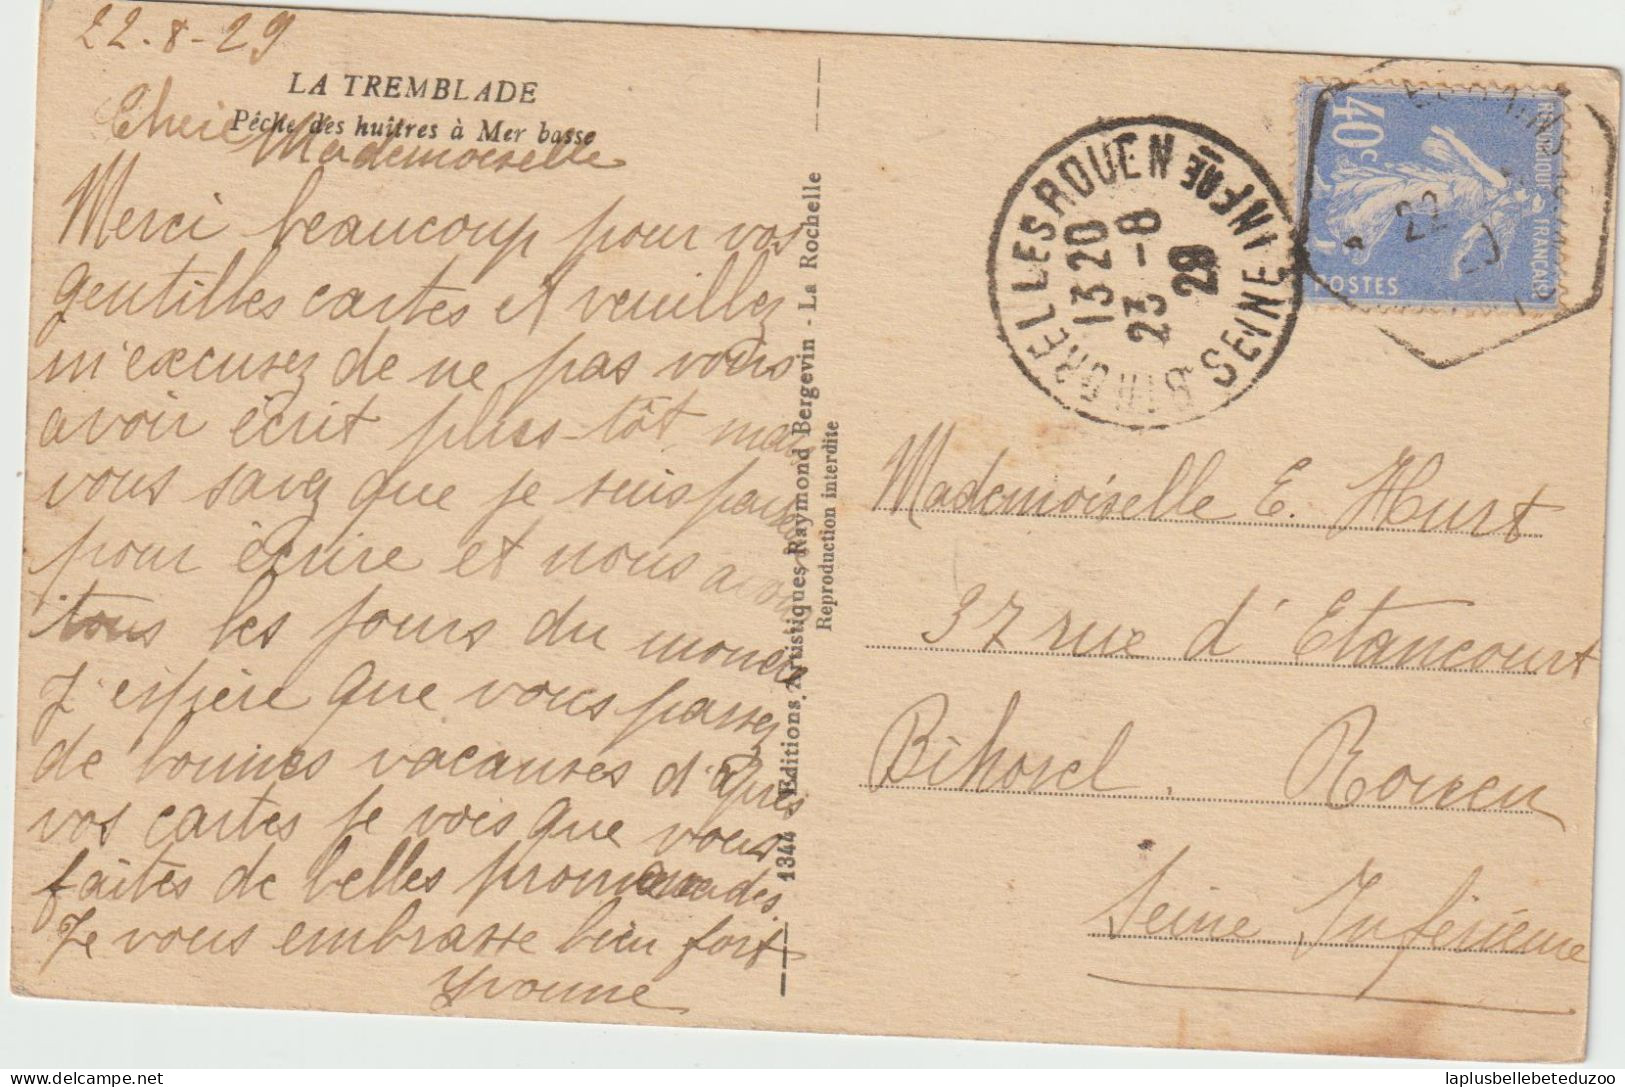 22-8-29
LA TREMBLADE
Pêche des huîtres à Mer basse
Chère Mademoiselle
Merci beaucoup pour vos
gentilles cartes et veuillez
m'excusez de ne pas vous
avoir écrit plus-tôt mais
vous savez que je suis
pour écrire et nous avons
tous les jours du monde
J'espère que vous passez
de bonnes vacances d'après
vos cartes je vois que vous
faites de belles promenades.
Je vous embrasse bien fort
Yvonne
1344 - Editions Artistiques Raymond Bergevin - La Rochelle
Reproduction interdite
BIHOREL LES ROUEN
SEINE INFRE
13 20
23 - 8
29
REPUBLIQUE FRANÇAISE
40c
POSTES
22
Mademoiselle E. Hurt
37 rue d'Etancourt
Bihorel. Rouen
Seine Inférieure
laplusbellebeteduzoo